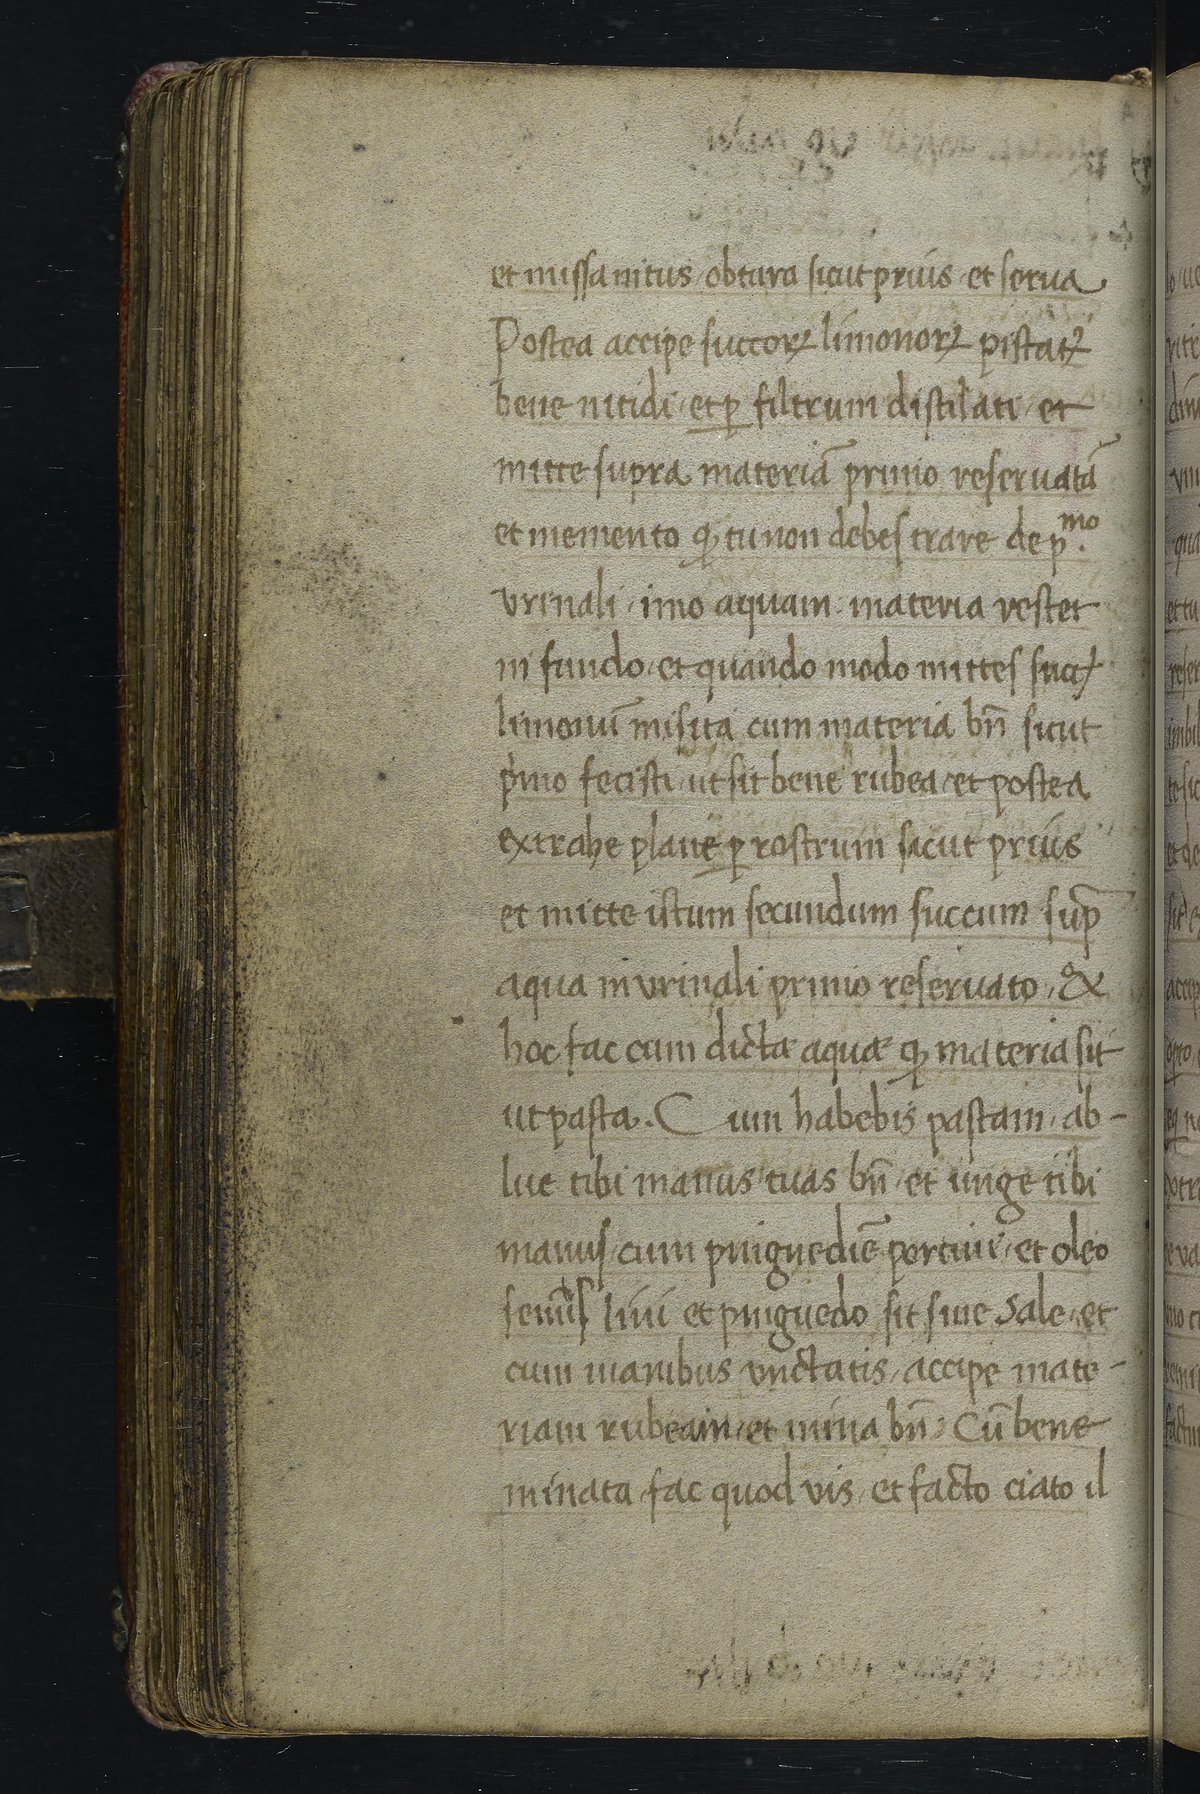 et missa intus, obtura sicut prius, et serua
Postea accipe succoꝝ limonoꝝ pistatꝝ
bene nitidi, et ꝑ filtrum distilati, et
mitte supra materiā primo reseruatā
et memento ꝙ tu non debes trare de p.mo
vrinali, imo aquam: materia restet
in fundo, et quando modo mittes
limonuī misita cum materia bn̄ sicut
pͥmo fecisti, ut sit bene rubea, et postea
extrahe plane ꝑ rostrum sicut prius
et mitte istum secundum succum sup̄
aqua in vrinali primo reseruato, &
hoc fac cum dicta aqua ꝙ materia sit
ut pasta. Cum habebis pastam, ab-
lue tibi manus tuas bn̄, et unge tibi
manus, cum pinguediē et oleo
lini et pinguedo sit sine sale, et
cum manibus vnctatis, accipe mate-
riam rubeam, et mina bn̄: Cū bene
minata, fac quod vis, et facto ciato il